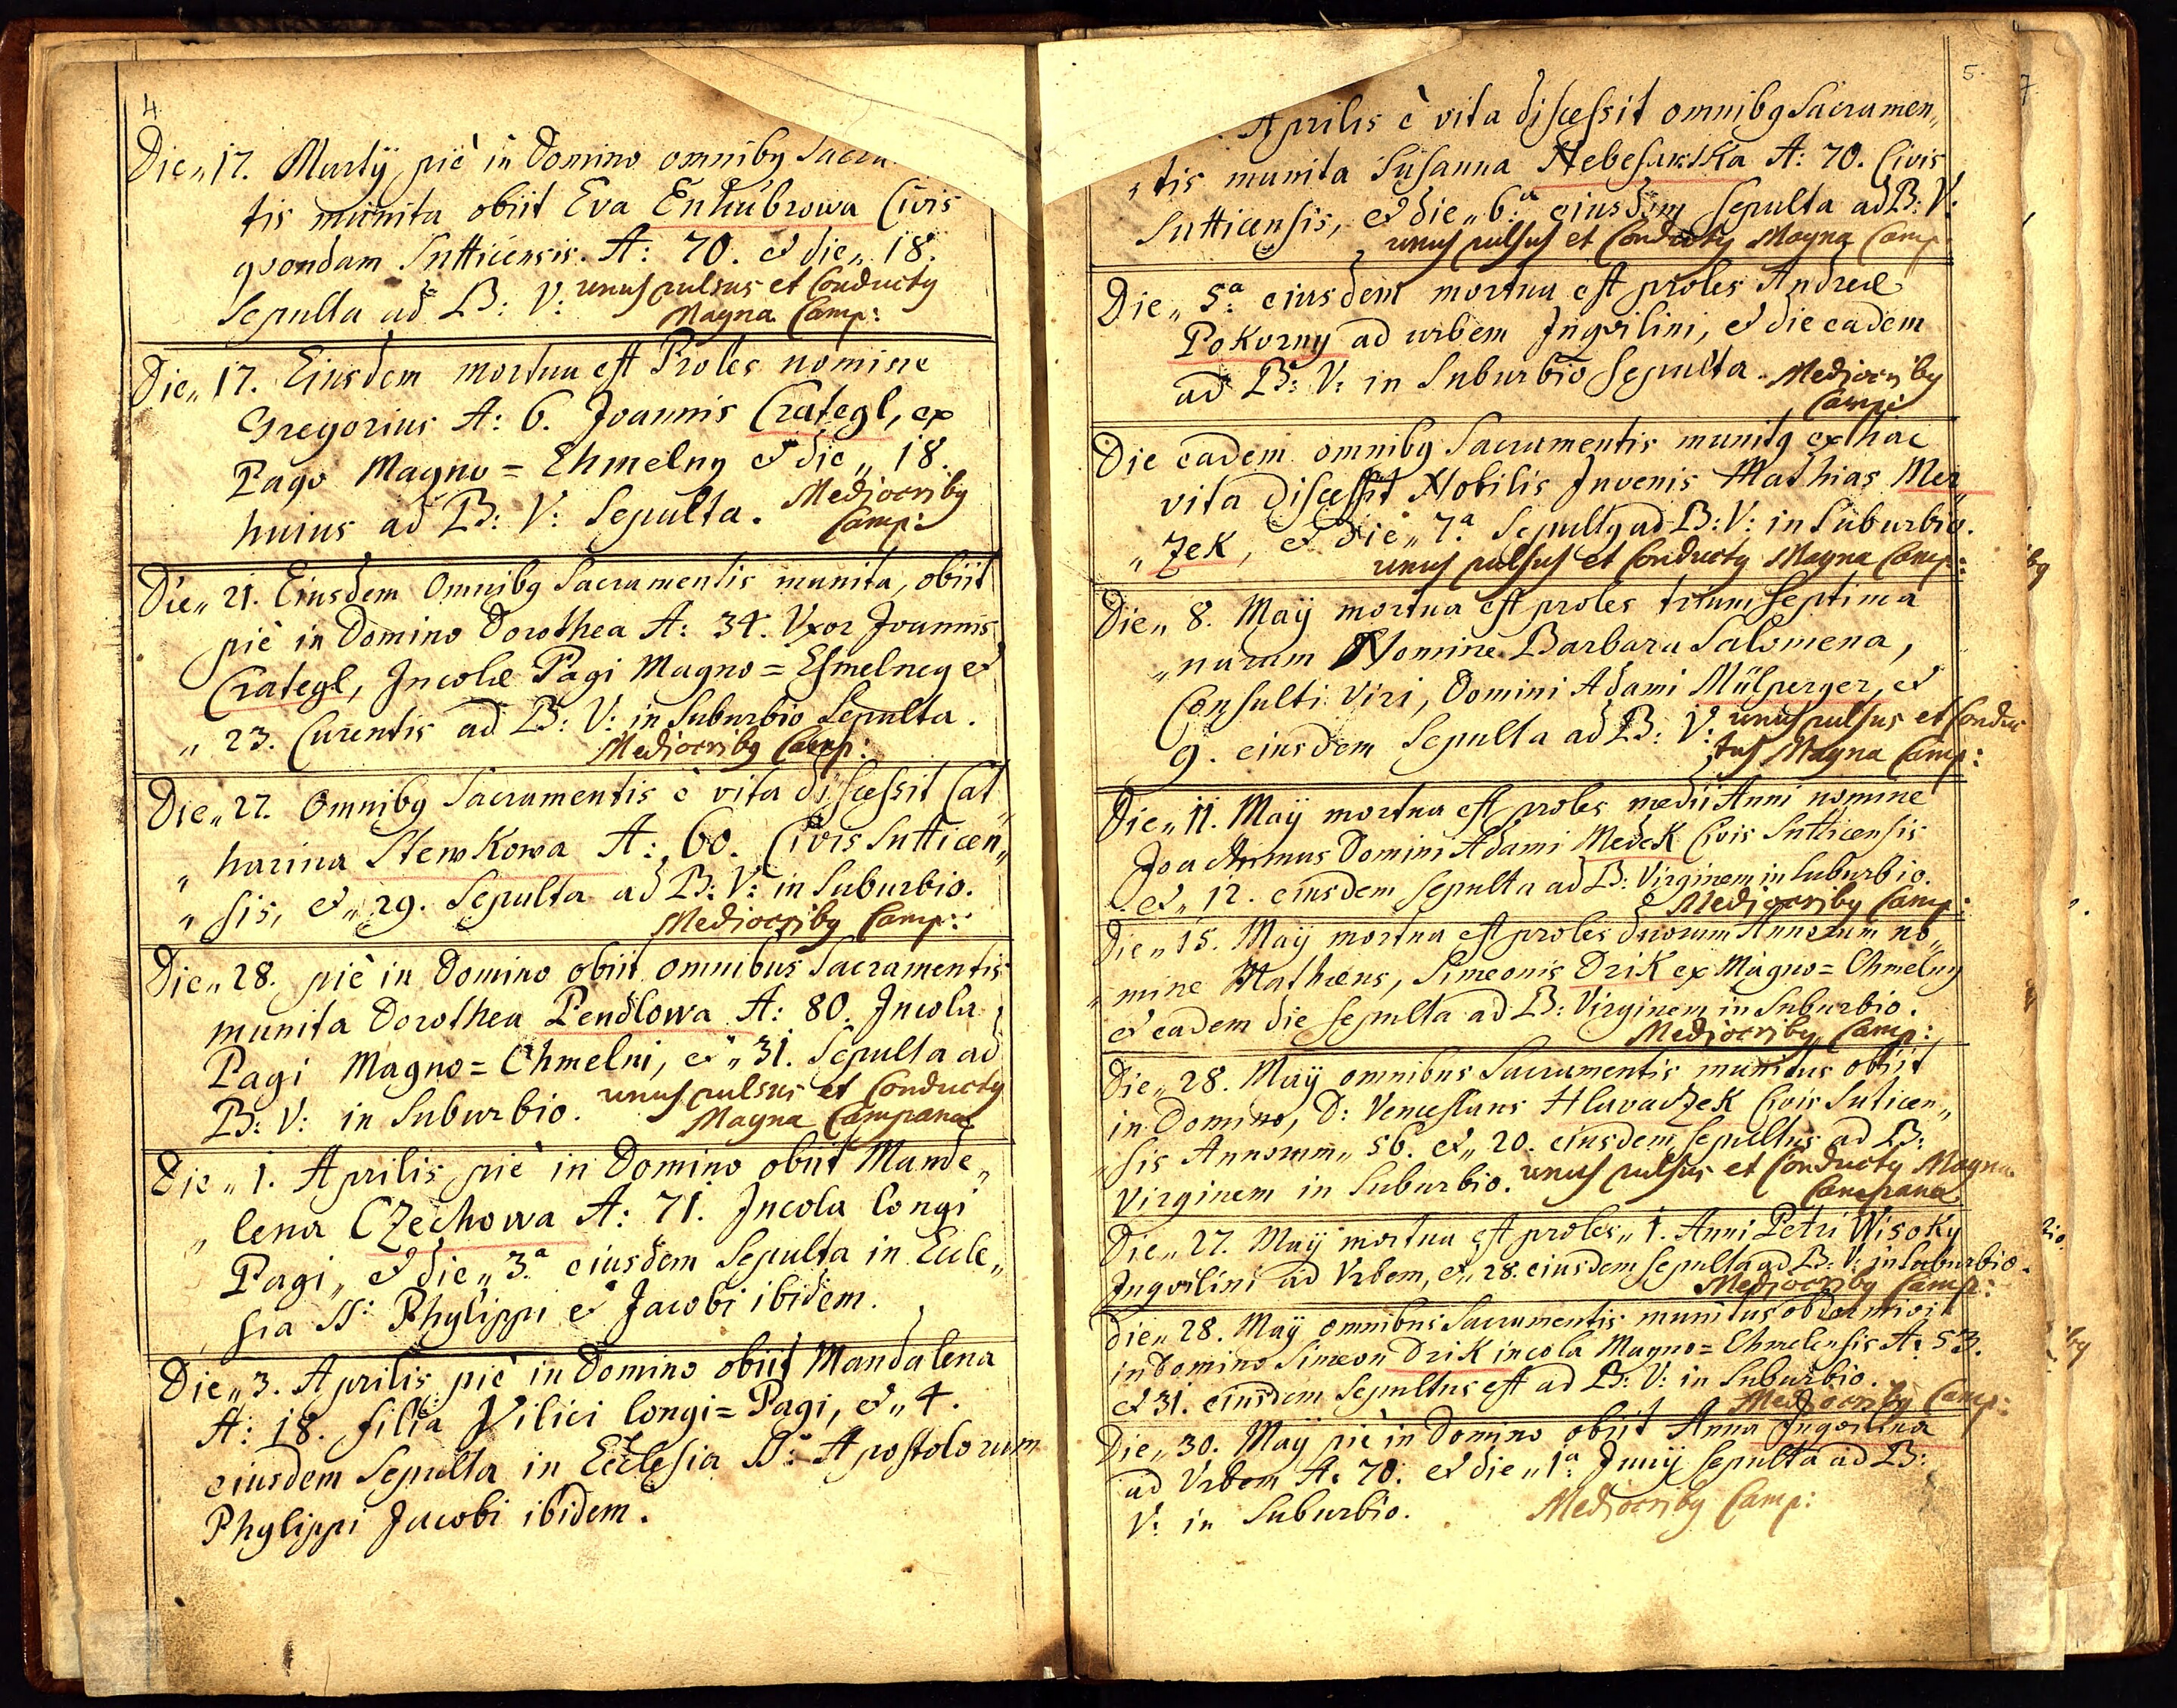 4.
Die„ 17. Martÿ piè in Domino omnibq Sacra
tis munita obiit Eva Enhubrowa Civis
qvondam Sutticensis. A: 70. et die„ 18.
Sepulta ad B: V: unus pulsus et Conductq
Magna Camp:
Die„ 17. Eiusdem mortua est Proles nomine
Gregorius A: 6. Joannis Crategl, ex
Pago Magno = Chmelny et die„ 18.
huius ad B: V: Sepulta. Mediocribq
Camp:
Die„ 21. Eiusdem Omnibq Sacramentis munita, obiit
piè in Domino Dorothea A: 34. Vxor Joannis
Crategl, Incolæ Pagi Magno = Chmelney et
„ 23. Curentis ad B: V: in Suburbio Sepulta.
Mediocribq Camp:
Die„ 27. Omnibq Sacramentis è vita discessit Cat„
„ harina Stewkowa A: 60. Civis Sutticen„
„ sis, et„ 29. Sepulta ad B: V: in Suburbio.
Mediocribq Camp:
Die„ 28. piè in Domino obiit omnibus Sacramentis
munita Dorothea Pendlowa A: 80. Incola
Pagi Magno = Chmelni, et„ 31. Sepulta ad
B: V: in Suburbio. unus pulsus et Conductq
Magna Campana
Die„ 1. Aprilis piè in Domino obiit Mande„
„ lena CZechowa A: 71. Incola longi
Pagi, et die„ 3.a eiusdem Sepulta in Eccle„
sia SS: Phylippi et Jacobi ibidem.
Die„ 3. Aprilis piè in Domino obiit Mandalena
A: 18. filia Vilici longi = Pagi, et„ 4.
eiusdem Sepulta in Ecclesia SS: Apostolorum
Phylippi Jacobi ibidem.
5.
Aprilis è vita discessit omnibq Sacramen„
„tis munita Susanna Nebesarska A: 70. Civis
Sutticensis, et die„ 6.a eiusdem Sepulta ad B: V:
unus pulsus et Conductq Magna Camp:
Die„ 5.a eiusdem mortua est proles Andreæ
Pokorny ad urbem Inqvilini, et die eadem
ad B: V: in Suburbio Sepulta. Mediocribq
Camp:
Die eadem omnibq Sacramentis munitq ex hac
vita discessit Nobilis Juvenis Mathias Mer„
„ Zek, et die„ 7.a Sepultq ad B: V: in Suburbio.
unus pulsus et Conductq Magna Camp:
Die„ 8. Maÿ mortua est proles trium septima
„narum Nomine Barbara Salomena,
Consulti Viri, Domini Adami Mülperger, et
9. eiusdem Sepulta ad B: V: unus pulsus et Conduc
tus Magna Camp:
Die„ 11. Maÿ mortua est proles medii Anni nomine
Joachimus Domini Adami Medek Civis Sutticensis
et„ 12. eiusdem sepulta ad B: Virginem in Suburbio.
Mediocribq Camp:
Die„ 15. Maÿ mortua est proles duorum Annorum no„
„ mine Mathæus, Simeonis Drik ex Magno = Chmelny
et eadem die sepulta ad B: Virginem in Suburbio.
Mediocribq Camp:
Die„ 28. Maÿ omnibus Sacramentis munitus obiit
in Domino, D: Venceslaus Hlavaczek Civis Suticen„
„ sis Annorum„ 56. et„ 20. eiusdem sepultus ad B:
Virginem in Suburbio. unus pulsus et Conductq Magna
Campana
Die„ 27. Maÿ mortua est proles„ 1. Anni Petri Wisoky
Inqvilini ad Vrbem, et„ 28. eiusdem sepulta ad B: V: in Suburbio.
Mediocribq Camp:
Die„ 28. Maÿ omnibus Sacramentis munitus obdormivit
in Domino Simeon Drik incola Magno = Chmelensis A: 53.
et 31. eiusdem Sepultus est ad B: V: in Suburbio.
Mediocribq Camp:
Die„ 30. Maÿ piè in Domino obiit Anna Inqvilina
ad Vrbem A: 70. et die„ 1.a Junÿ sepulta ad B:
V: in Suburbio. Mediocribq Camp: